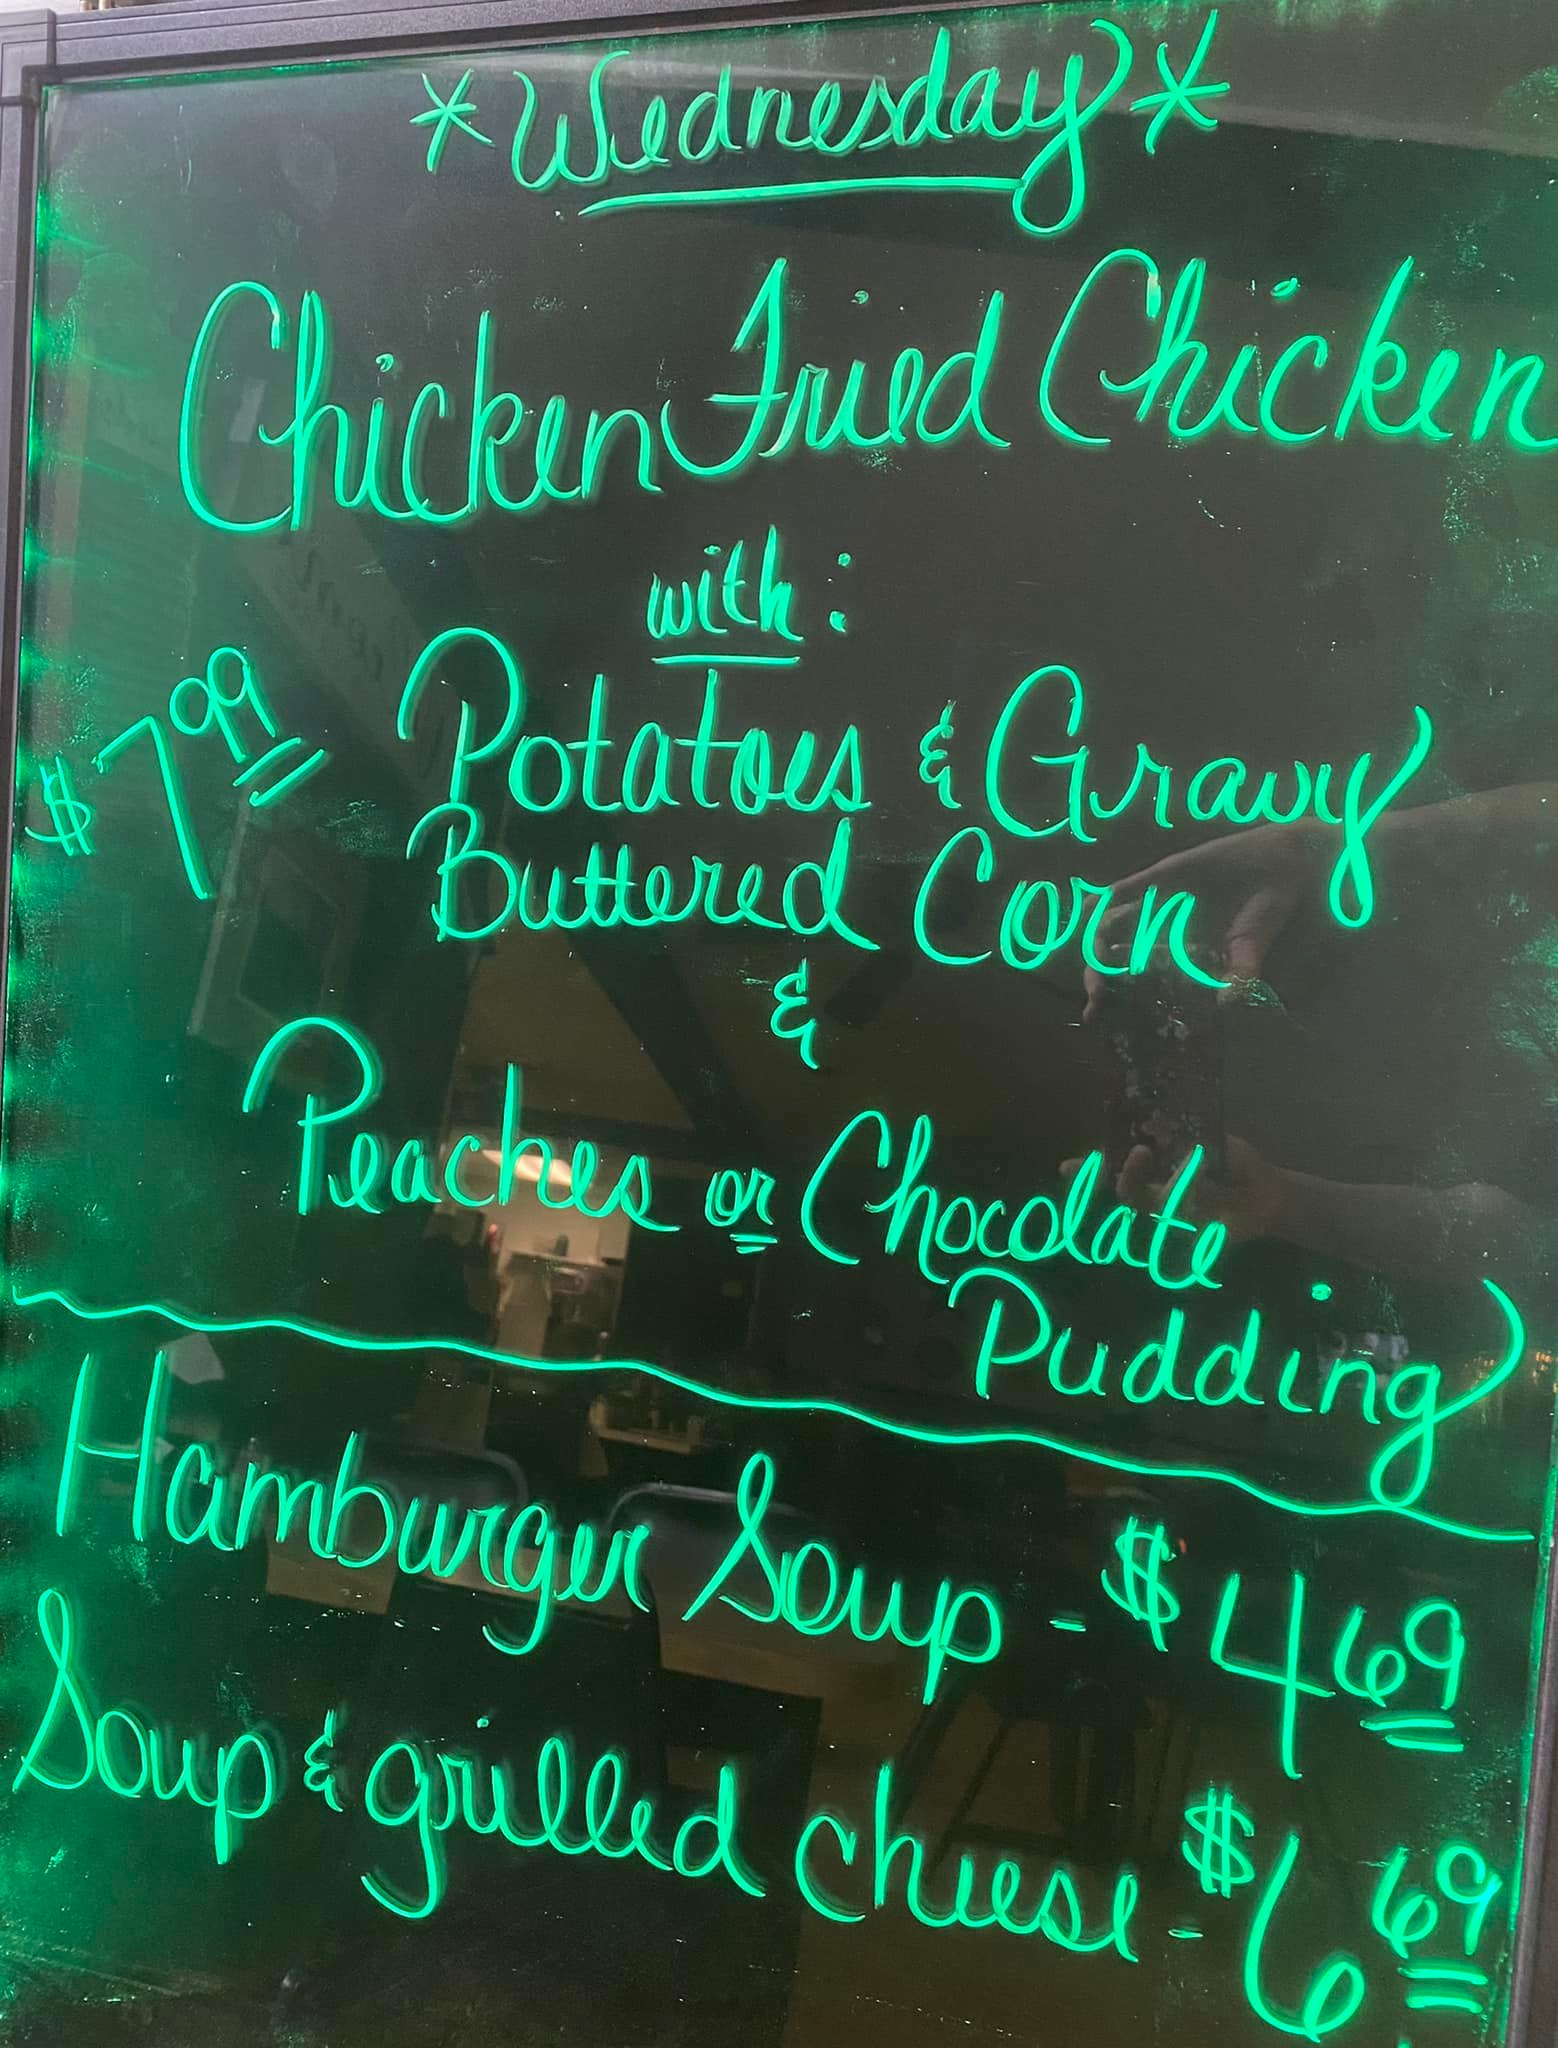 *Wednesday*
Chicken Fried Chicken
with:
$7.99
Potatoes & Gravy
Buttered Corn
&
Peaches or Chocolate
Pudding
Hamburger Soup - $4.69
Soup & grilled cheese - $6.69